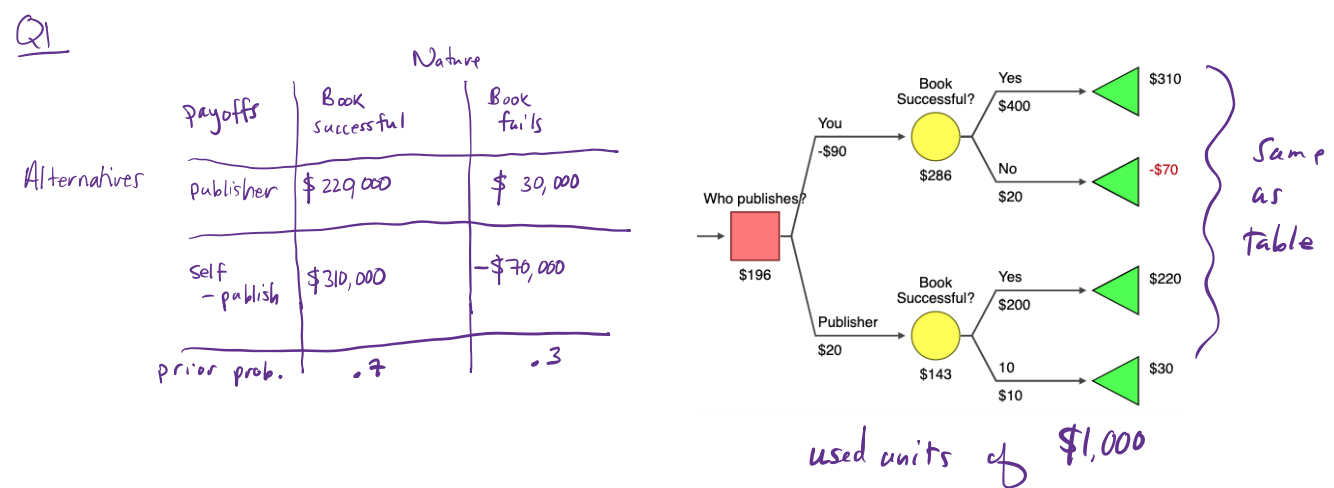 Q1
Nature
Payoffs
Book
successful
Book
fails
Alternatives
Publisher
$ 220,000
$ 30,000
Self
-publish
$310,000
-$70,000
prior prob.
.7
.3
Who publishes?
$196
You
-$90
Book
Successful?
$286
Yes
$400
$310
No
$20
-$70
Publisher
$20
Book
Successful?
$143
Yes
$200
$220
10
$10
$30
Same
as
table
used units of $1,000